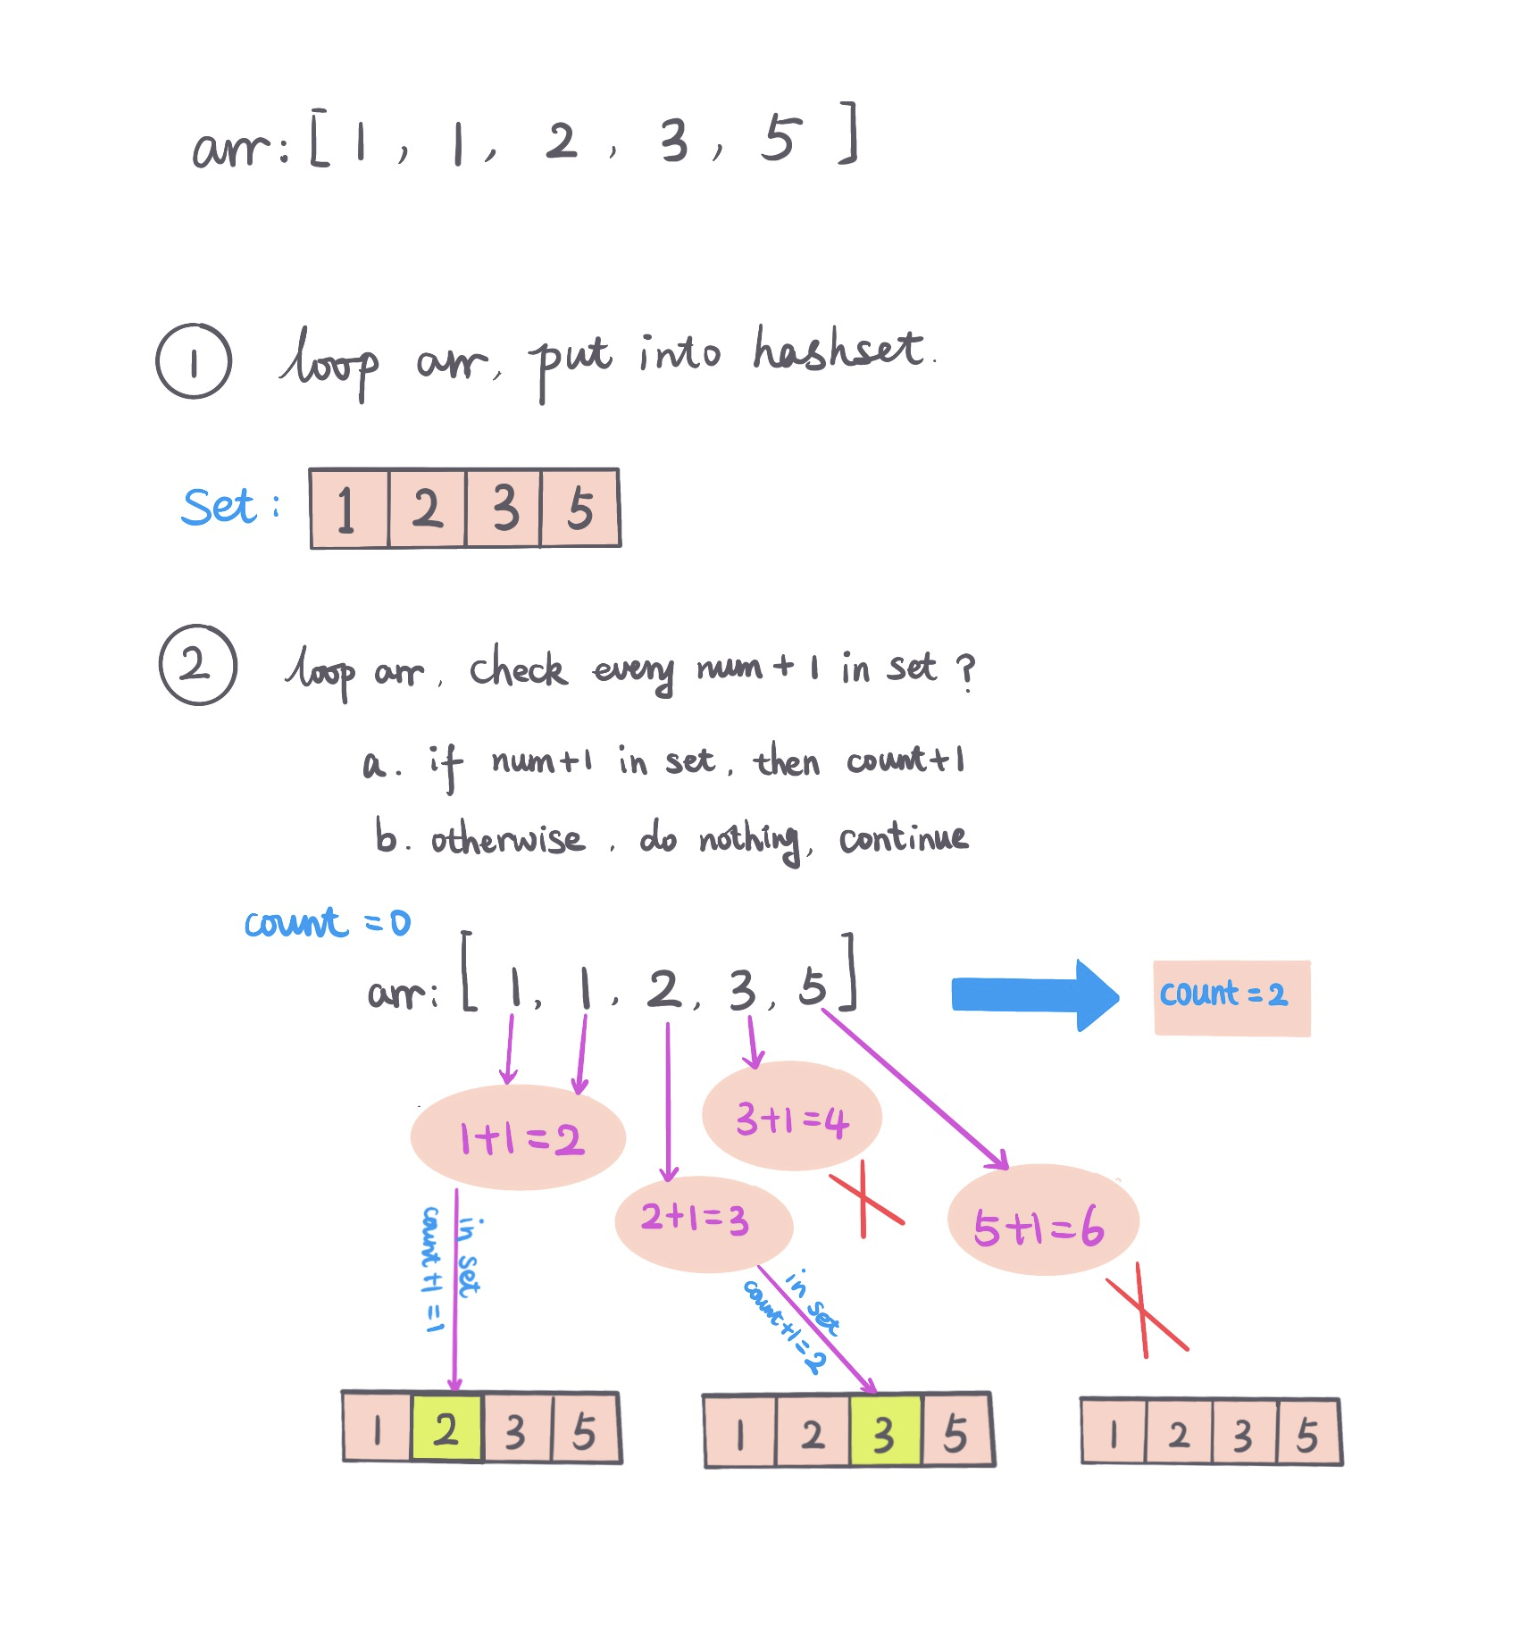 arr: [ 1 , 1 , 2 , 3 , 5 ]
① loop arr, put into hashset.
Set: 1 2 3 5
② loop arr, check every num + 1 in set ?
a. if num+1 in set, then count+1
b. otherwise, do nothing, continue
count = 0
arr: [ 1, 1, 2, 3, 5 ]
count = 2
1+1=2
3+1=4
2+1=3
5+1=6
in set
count+1=1
in set
count+1=2
1 2 3 5
1 2 3 5
1 2 3 5